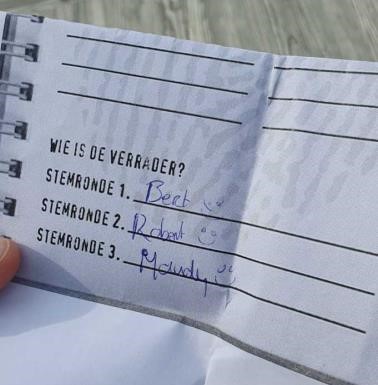 WIE IS DE VERRADER?
STEMRONDE 1. Bert
STEMRONDE 2. Robert
STEMRONDE 3. Mandy